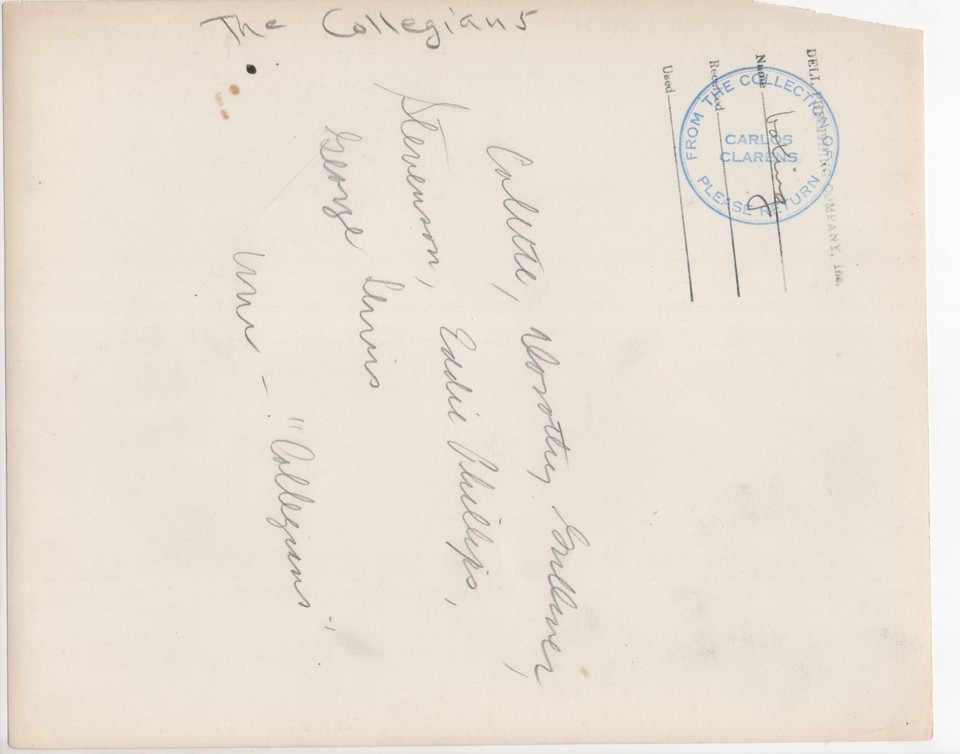 The Collegians
DELL PUBLISHING COMPANY, Inc.
Name
Received
Used
FROM THE COLLECTION OF
CARLOS
CLARENS
PLEASE RETURN
Dorothy Gulliver,
Stevenson, Eddie Phillips,
George Lewis
"Collegians".